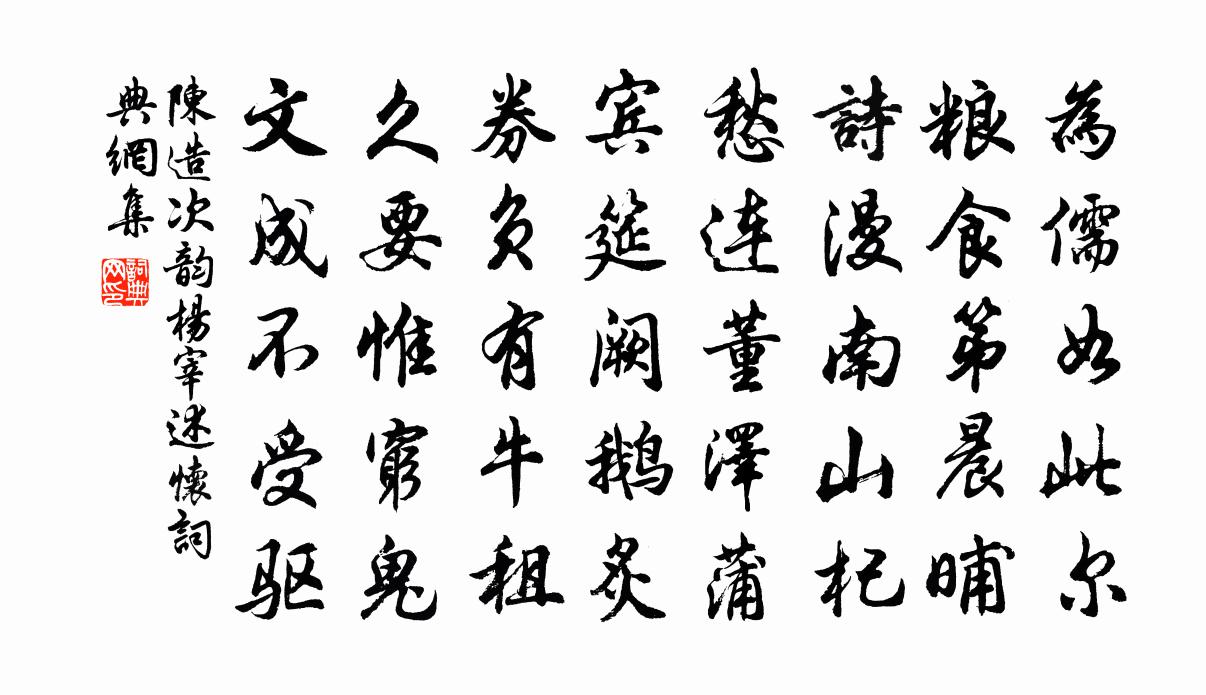 為儒如此尔
粮食第晨晡
詩漫南山杞
愁連董澤蒲
宾筵阙鹅炙
券负有牛租
久要惟窮鬼
文成不受驱
陳造次韵楊宰述懷詞
典網集
詞典
网印